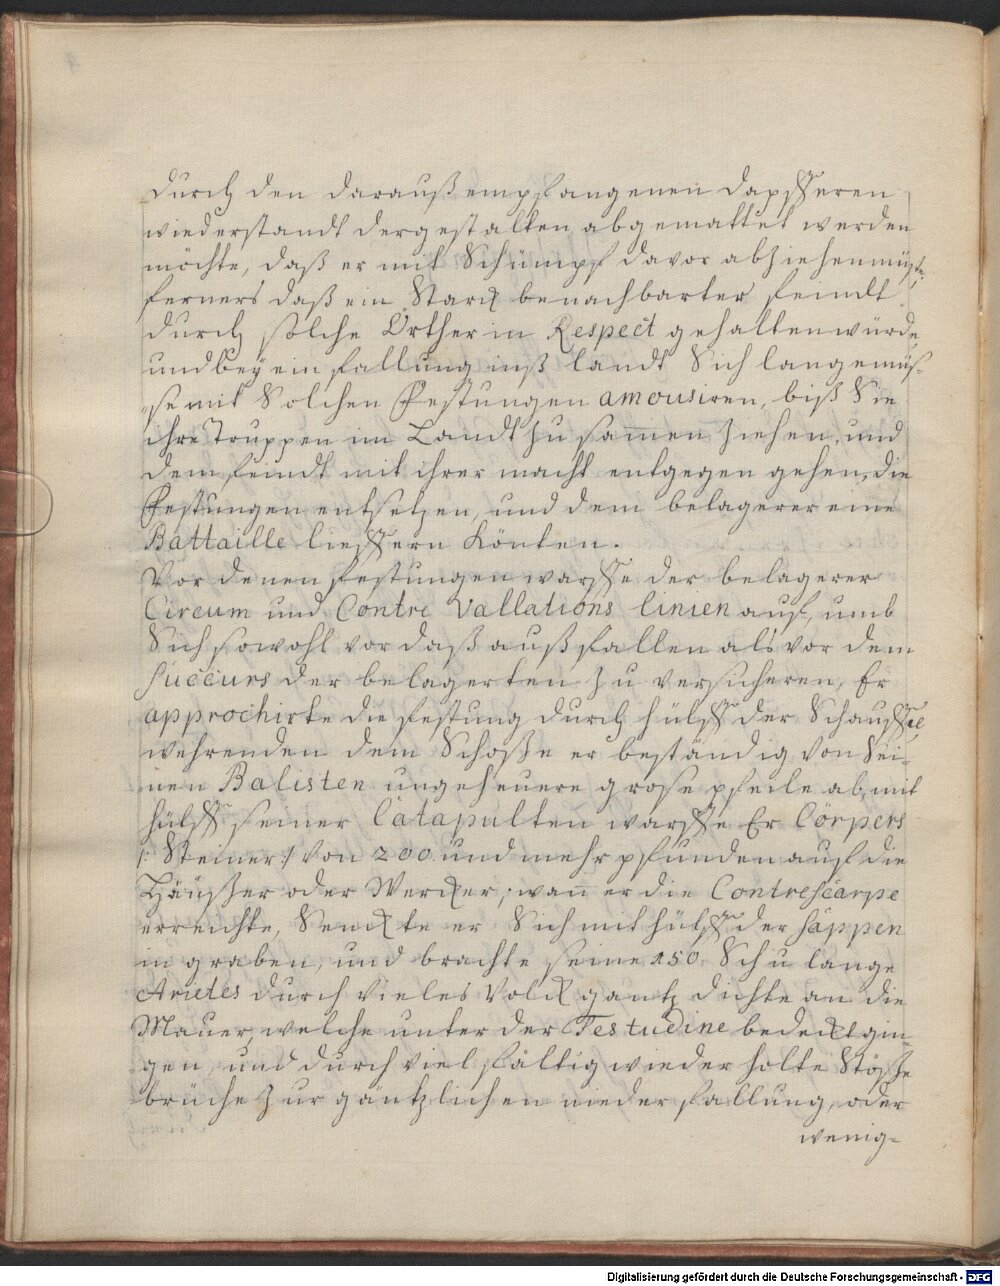 durch den darauß empfangenen dapfferen
wiederstandt dergestalten abgemattet werden
möchte, daß er mit Schümpf davor abziehen müste,
ferners daß ein Starck benachbarter feindt
durch solche Örther in Respect gehalten würde
und bey einfallung inß landt Sich lange müs-
se mit Solchen Festungen amousiren, biß Sie
ihre Truppen im Landt zusam̄en ziehen, und
dem feindt mit ihrer macht entgegen gehen, die
Festungen entsetzen, und dem belagerer eine
Battaille lieffern Könten.
Vor denen festungen warffe der belagerer
Circum und Contre Vallations linien auf, umb
Sich sowohl vor daß außfallen als vor dem
Succurs der belagerten zu versicheren, Er
approchirte die festung durch hülff der Schauffel
wehrenden dem Schoße er beständig von Sei-
nen Balisten ungeheuere grose pfeile ab, mit
hülff seiner Catapulten warffe Er Cörpers
/: Steiner :/ von 200 und mehr pfunden auf die
Häußer oder Wercker, wan̄ er die Contrescarpe
erreichte, Senckte er Sich mit hülff der Sappen
in graben, und brachte seine 150 Schu lange
Arietes durch vieles Volck gantz dichte an die
Mauer, welche unter der Testudine bedeckt gin-
gen, und durch viel fältig wieder holte Stöße
brüche zur gäntzlichen niederfallung, oder
wenig-
Digitalisierung gefördert durch die Deutsche Forschungsgemeinschaft - DFG